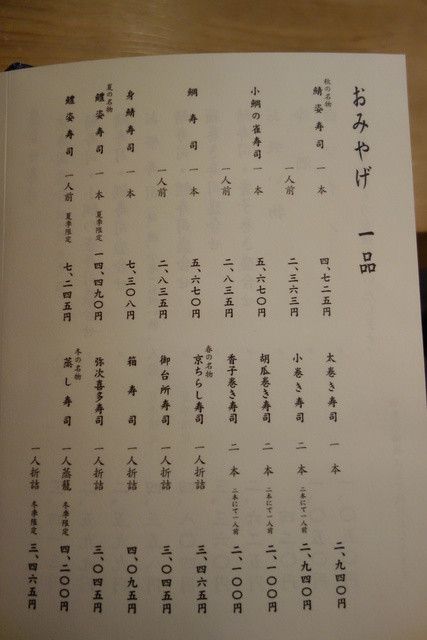 おみやげ 一品
秋の名物
鯖姿寿司 一本 四、七二五円
一人前 二、三六三円
小鯛の雀寿司 一本 五、六七〇円
一人前 二、八三五円
鯛寿司 一本 五、六七〇円
一人前 二、八三五円
身鯖寿司 一本 七、三〇八円
夏の名物
鱧姿寿司 一本 夏季限定 一四、四九〇円
鱧姿寿司 一人前 夏季限定 七、二四五円
太巻き寿司 一本 二、九四〇円
小巻き寿司 二本 二本にて一人前 二、九四〇円
胡瓜巻き寿司 二本 二本にて一人前 二、一〇〇円
香子巻き寿司 二本 二本にて一人前 二、一〇〇円
春の名物
京ちらし寿司 一人折詰 三、四六五円
御台所寿司 一人折詰 三、〇四五円
箱寿司 一人折詰 四、〇九五円
弥次喜多寿司 一人折詰 三、〇四五円
冬の名物
蒸し寿司 一人蒸籠 冬季限定 四、二〇〇円
一人折詰 冬季限定 三、四六五円